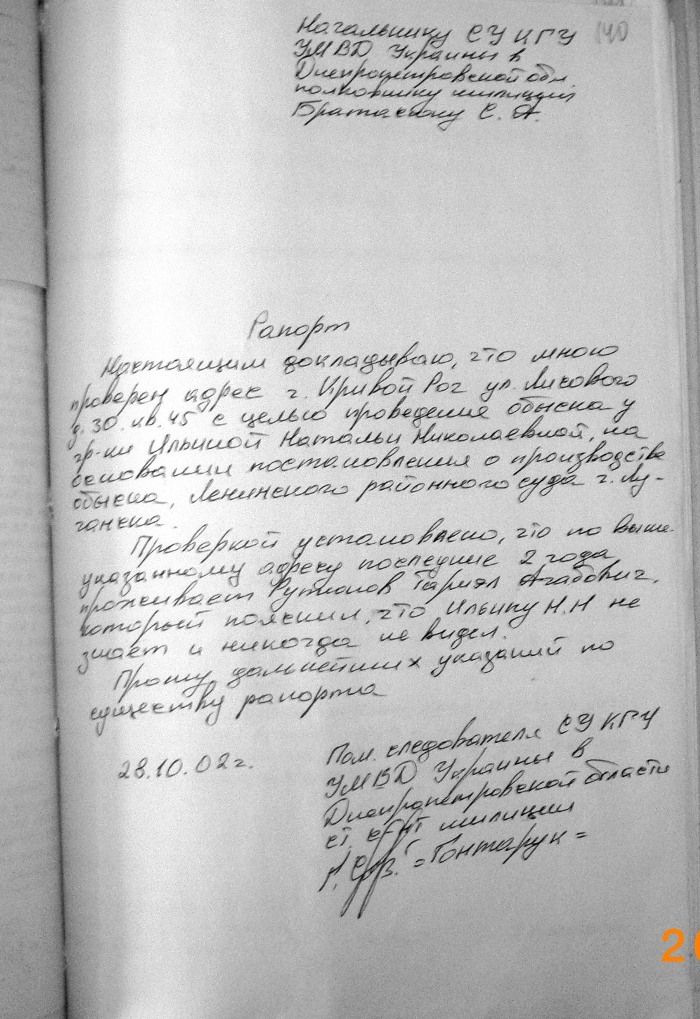 140
Начальнику СУ КГУ
УМВД Украины в
Днепропетровской обл.
полковнику милиции
С. А.
Рапорт
Настоящим докладываю, что мною
проверен адрес г. Кривой Рог ул.
д. 30. кв. 45 с целью проведения обыска у
гр-ки Ильиной Натальи Николаевной, на
основании постановления о производстве
обыска, Ленинского районного суда г. Лу-
ганска.
Проверкой установлено, что по выше-
указанному адресу последние 2 года
проживает Тариэл
который пояснил, что Ильину Н.Н не
знает и никогда не видел.
Прошу дальнейших указаний по
существу рапорта
28.10.02г.
Пом. следователя СУ КГУ
УМВД Украины в
Днепропетровской области
ст. с-нт милиции
=Гонтарук=
2